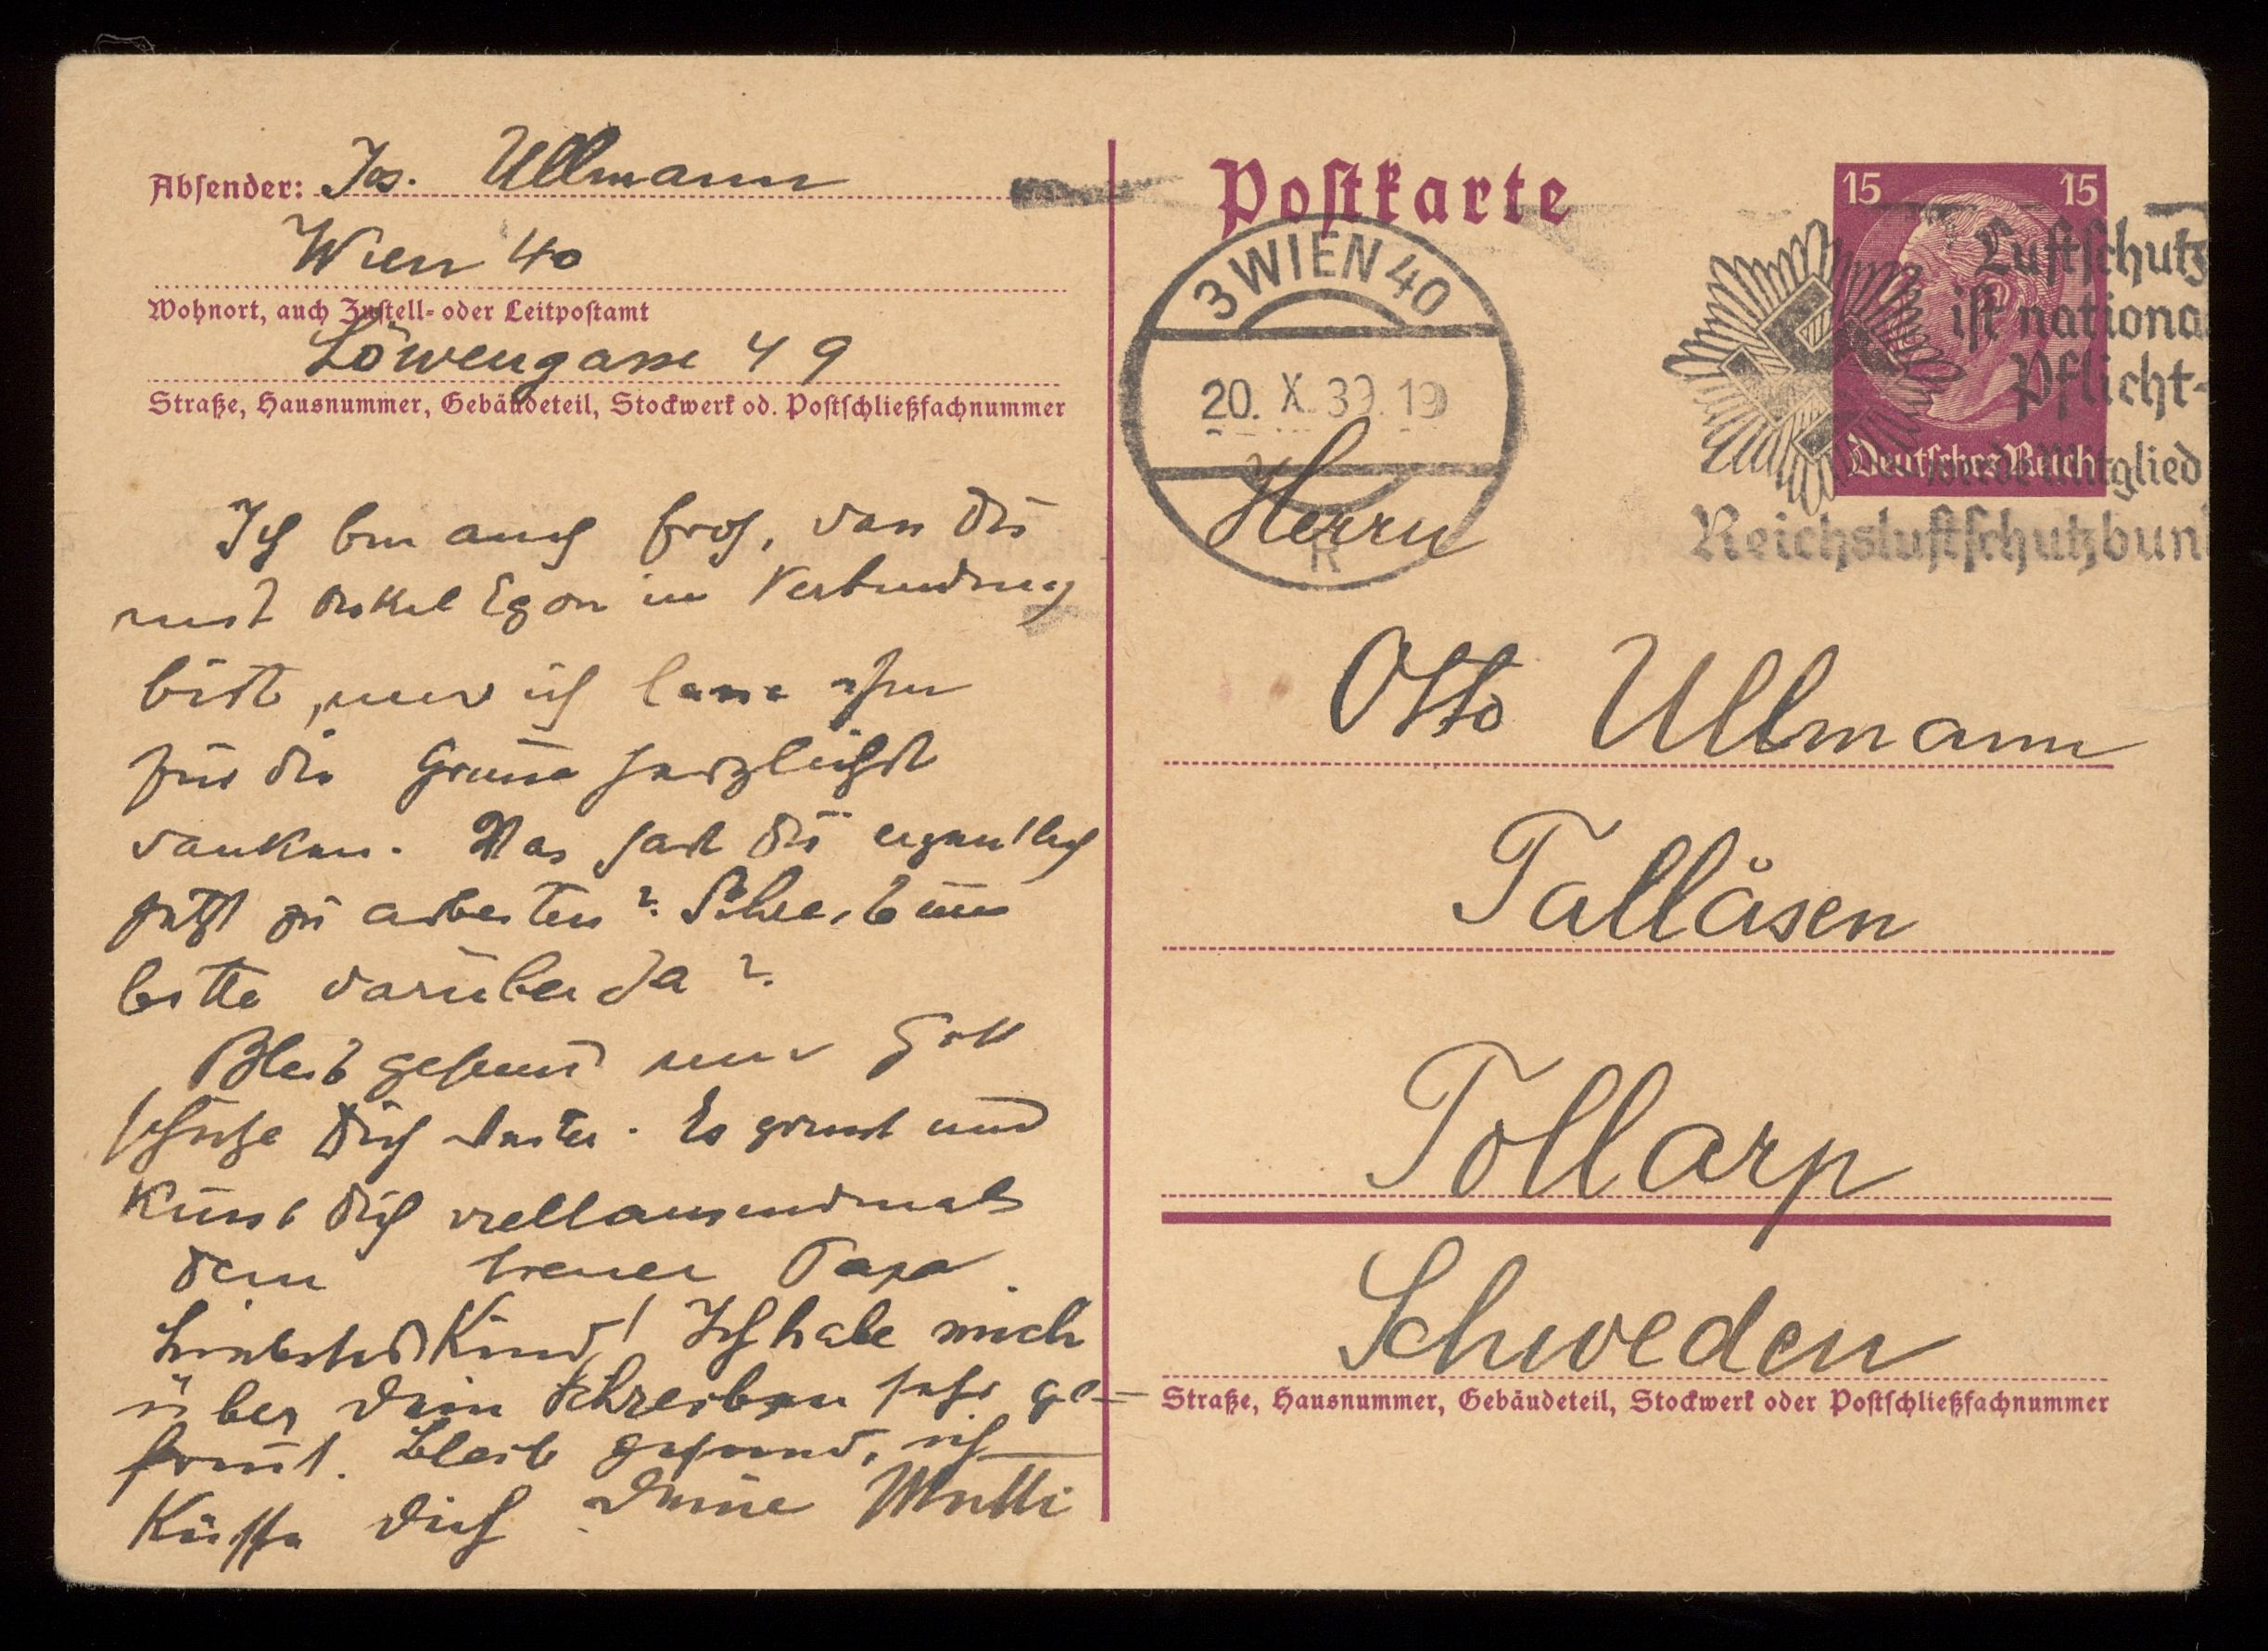 Absender: Jos. Ullmann
Wien 40
Wohnort, auch Zustell- oder Leitpostamt
Löwengasse 49
Straße, Hausnummer, Gebäudeteil, Stockwerk od. Postschließfachnummer
Ich bin auch froh, dass Du
mit Onkel Egon in Verbindung
bist, und ich lasse ihm
für die Grüsse herzlichst
danken. Was hast Du eigentlich
jetzt zu arbeiten? Schreib uns
bitte darüber Ja?
Bleib gesund und Gott
schütze Dich weiter. Es grüsst und
küsst Dich vieltausendmals
dein treuer Papa.
Liebstes Kind! Ich habe mich
über Dein Schreiben sehr ge-
freut. Bleib gesund, ich
küsse Dich Deine Mutti
Postkarte
15 15
Deutsches Reich
3 WIEN 40
20. X. 39. 19
K
Luftschutz
ist nationa
Pflicht-
werde Mitglied
Reichsluftschutzbun
Herrn
Otto Ullmann
Tallåsen
Tollarp
Schweden
Straße, Hausnummer, Gebäudeteil, Stockwerk oder Postschließfachnummer